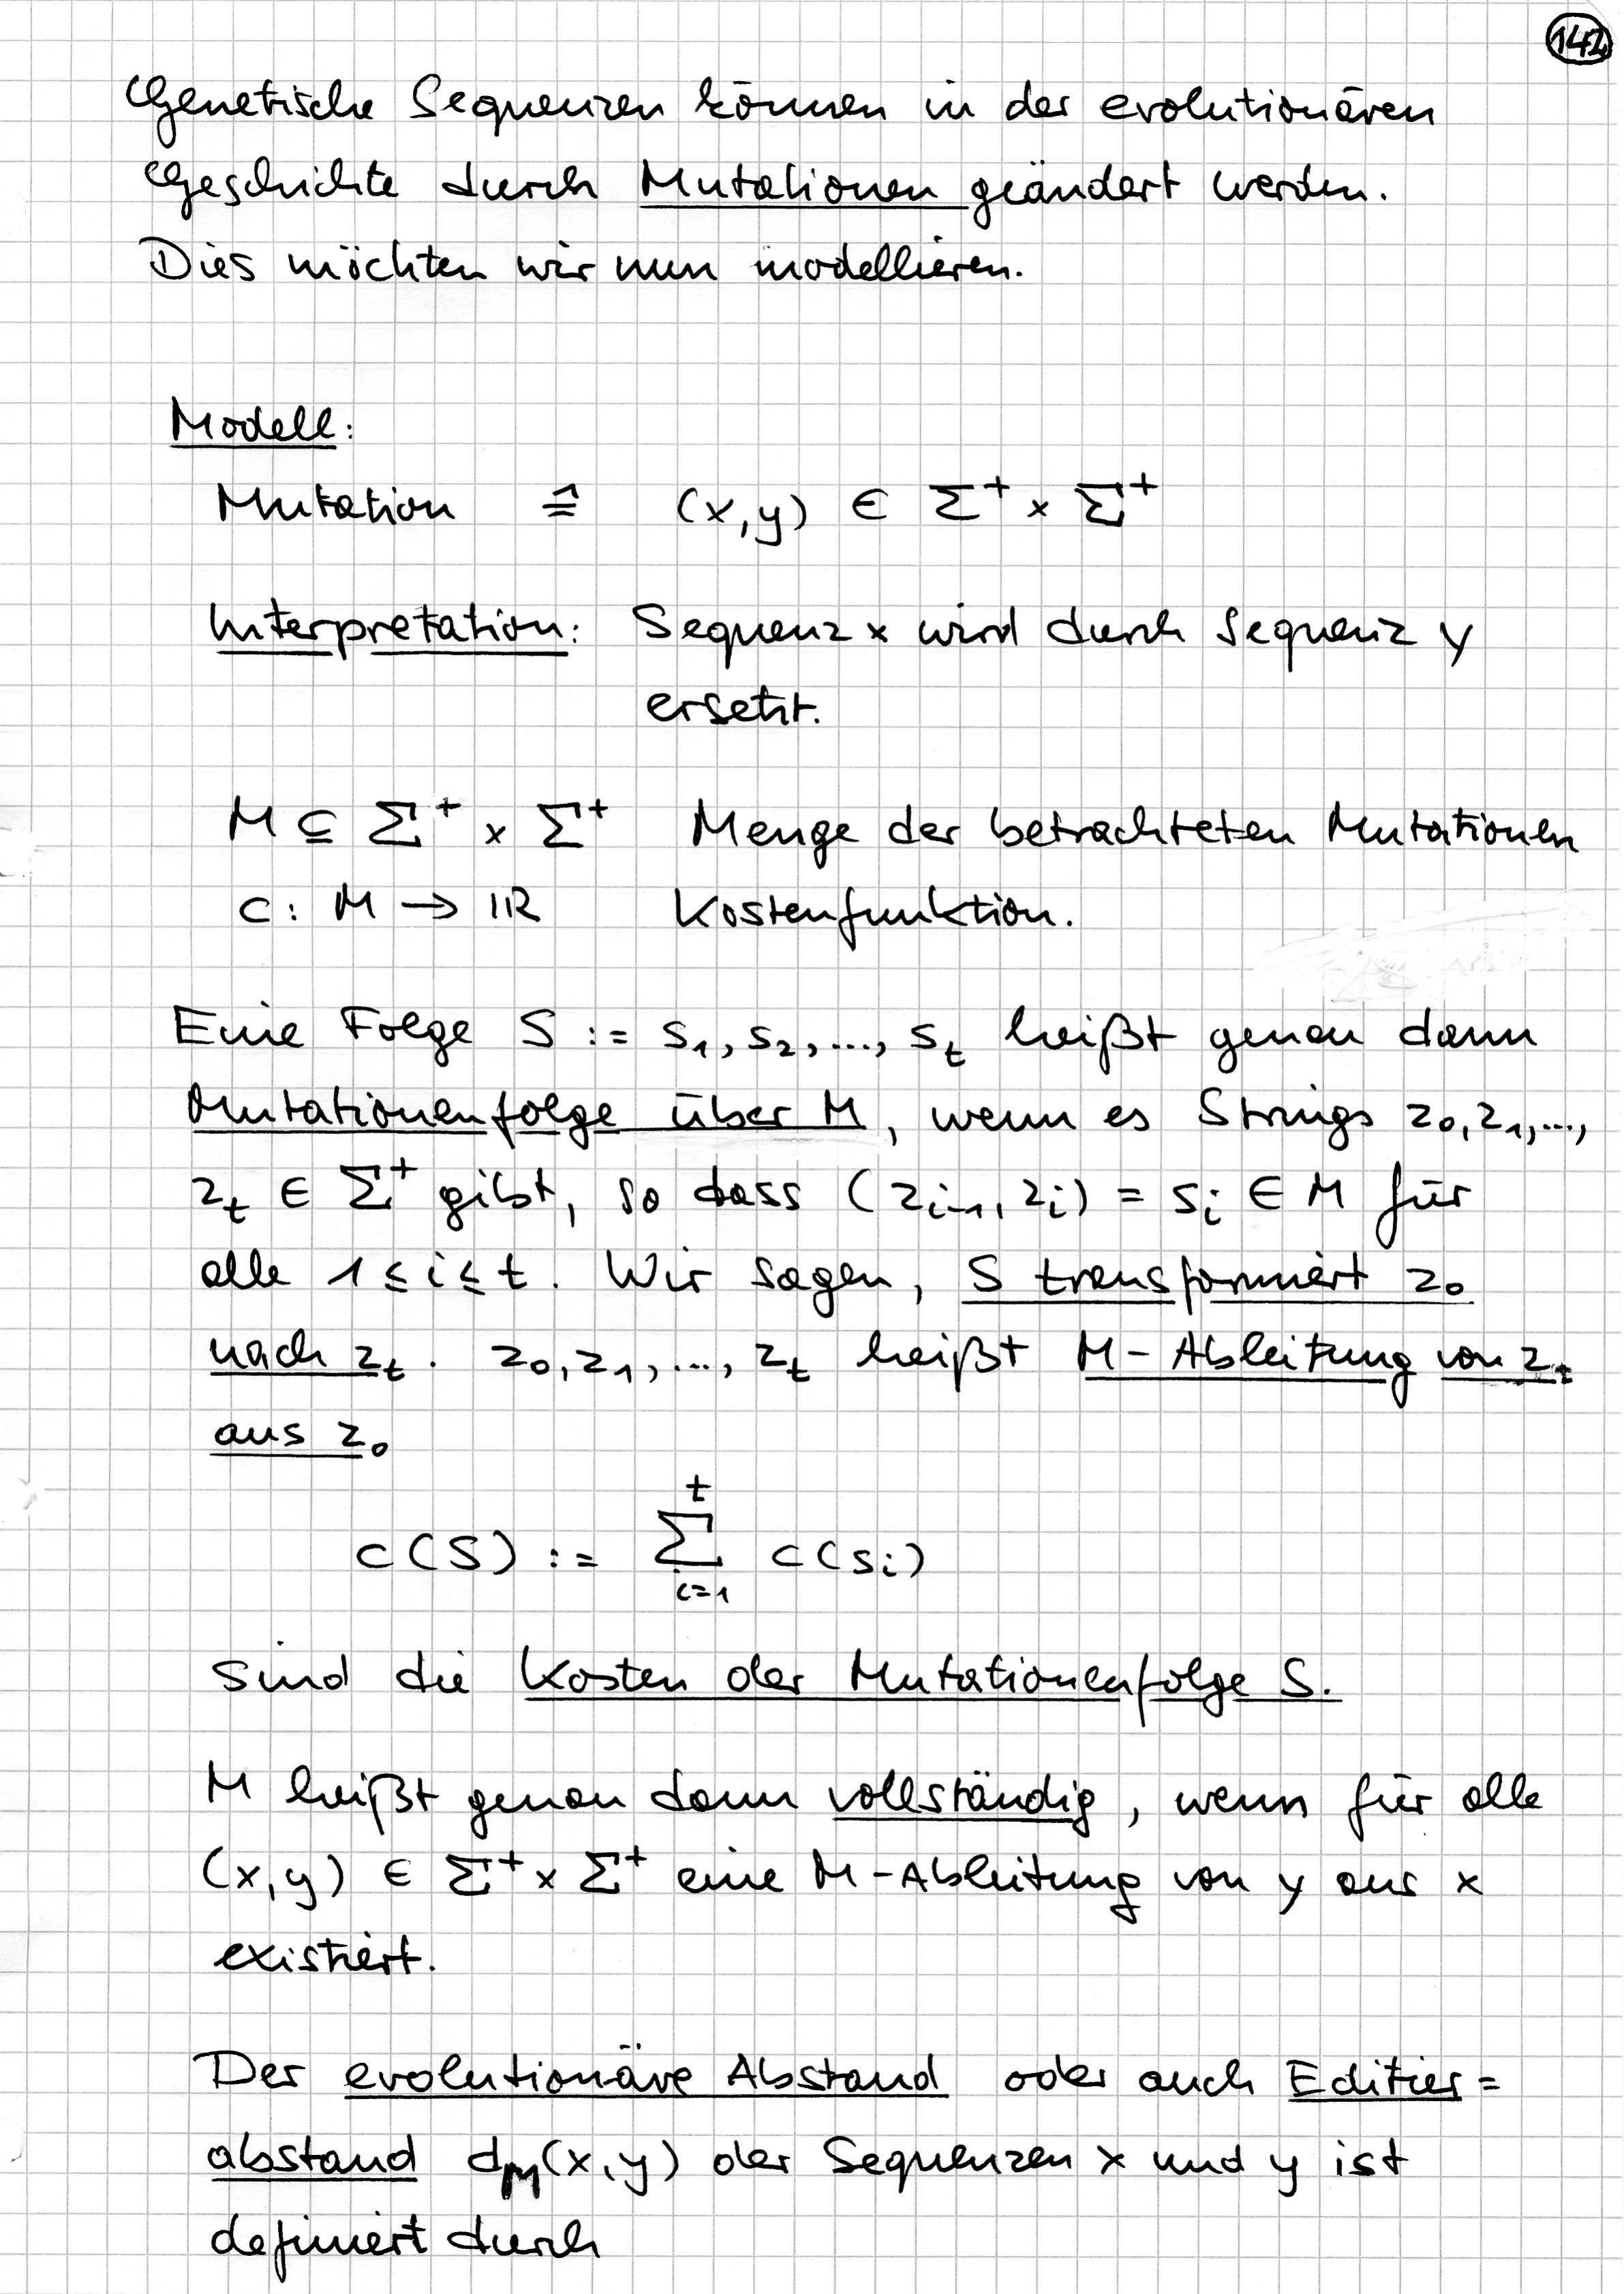 142
Genetische Sequenzen können in der evolutionären
Geschichte durch Mutationen geändert werden.
Dies möchten wir nun modellieren.
Modell:
Mutation ≙ (x,y) ∈ Σ⁺ × Σ⁺
Interpretation: Sequenz x wird durch Sequenz y
ersetzt.
M ⊆ Σ⁺ × Σ⁺ Menge der betrachteten Mutationen
c: M → ℝ Kostenfunktion.
Eine Folge S := s₁, s₂, ..., sₜ heißt genau dann
Mutationenfolge über M, wenn es Strings z₀, z₁, ...,
zₜ ∈ Σ⁺ gibt, so dass (zᵢ₋₁, zᵢ) = sᵢ ∈ M für
alle 1 ≤ i ≤ t. Wir sagen, S transformiert z₀
nach zₜ. z₀, z₁, ..., zₜ heißt M-Ableitung von zₜ
aus z₀
t
c(S) := Σ c(sᵢ)
i=1
sind die Kosten der Mutationenfolge S.
M heißt genau dann vollständig, wenn für alle
(x,y) ∈ Σ⁺ × Σ⁺ eine M-Ableitung von y aus x
existiert.
Der evolutionäre Abstand oder auch Editier=
abstand d_M(x,y) der Sequenzen x und y ist
definiert durch